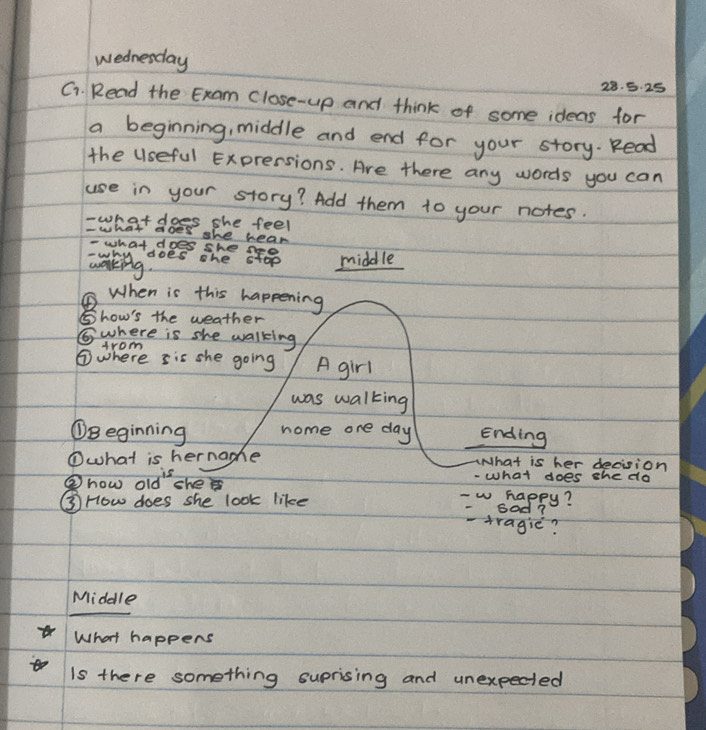 Wednesday
28.5.25
G. Read the Exam Close-up and think of some ideas for
a beginning, middle and end for your story. Read
the Useful Expressions. Are there any words you can
use in your story? Add them to your notes.
- what does she feel
- what does she hear
- what does she see
- why does she stop
walking.
middle
④ When is this happening
⑤ how's the weather
⑥ where is she walking
from
⑦ where is is she going
A girl
was walking
home one day
① Beginning
① what is her name
② how old is she
③ How does she look like
Ending
- What is her decision
- what does she do
- w happy?
- sad?
- tragic?
Middle
☆ What happens
☆ Is there something suprising and unexpected